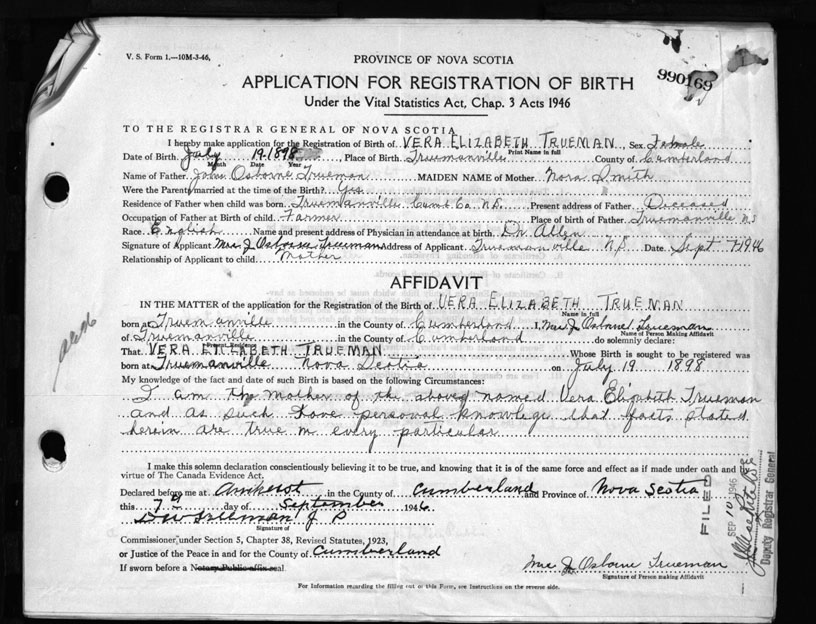 V. S. Form 1.—10M-3-46,
PROVINCE OF NOVA SCOTIA
990169
APPLICATION FOR REGISTRATION OF BIRTH
Under the Vital Statistics Act, Chap. 3 Acts 1946
TO THE REGISTRAR GENERAL OF NOVA SCOTIA
I hereby make application for the Registration of Birth of VERA ELIZABETH TRUEMAN, Sex Female
Print Name in full
Date of Birth July 19 1898, Place of Birth Truemanville County of Cumberland
Month Date Year
Name of Father John Osborne Trueman MAIDEN NAME of Mother Nora Smith
Were the Parents married at the time of the Birth? Yes
Residence of Father when child was born Truemanville Cumb Co. N.S. Present address of Father Deceased
Occupation of Father at Birth of child Farmer Place of birth of Father Truemanville N.S
Race English Name and present address of Physician in attendance at birth Dr Allen
Signature of Applicant Mrs J Osborne Trueman Address of Applicant Truemanville N.S. Date Sept 7 1946
Relationship of Applicant to child Mother
AFFIDAVIT
IN THE MATTER of the application for the Registration of the Birth of VERA ELIZABETH TRUEMAN
Name in full
born at Truemanville in the County of Cumberland I, Mrs J Osborne Trueman
Name of Person Making Affidavit
of Truemanville in the County of Cumberland do solemnly declare:
Present Residence
That VERA ELIZABETH TRUEMAN Whose Birth is sought to be registered was
born at Truemanville Nova Scotia on July 19 1898
My knowledge of the fact and date of such Birth is based on the following Circumstances:
I am the mother of the above named Vera Elizabeth Trueman
and as such have personal knowledge that facts stated
herein are true in every particular
I make this solemn declaration conscientiously believing it to be true, and knowing that it is of the same force and effect as if made under oath and
virtue of The Canada Evidence Act.
Declared before me at Amherst in the County of Cumberland and Province of Nova Scotia
this 7th day of September 1946
Trueman J P
Signature of
Commissioner under Section 5, Chapter 38, Revised Statutes, 1923,
or Justice of the Peace in and for the County of Cumberland
If sworn before a Notary Public affix seal.
Mrs J Osborne Trueman
Signature of Person making Affidavit
For Information regarding the filling out of this Form, see Instructions on the reverse side.
FILED
SEP 10 1946
Deputy Registrar General